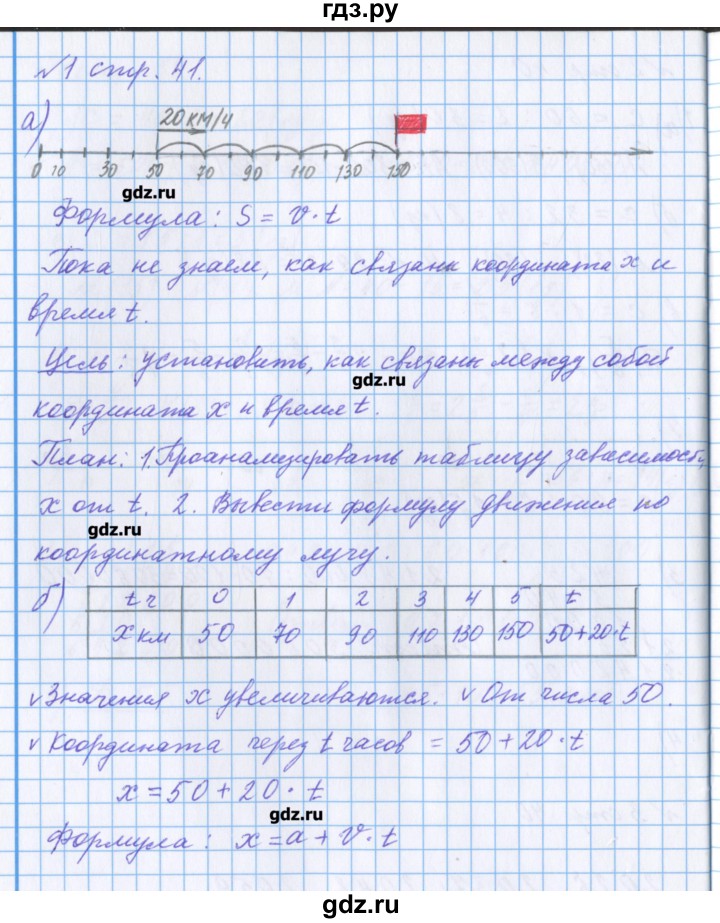 гдз.ру
№1 стр. 41.
а) 20 км/ч
0 10 30 50 70 90 110 130 150
gdz.ru
Формула: S = v · t
Пока не знаем, как связаны координата x и
время t.
Цель: установить, как связаны между собой
gdz.ru
координата x и время t.
План: 1. Проанализировать таблицу зависимость
x от t. 2. Вывести формулу движения по
gdz.ru
координатному лучу.
б) t ч 0 1 2 3 4 5 t
x км 50 70 90 110 130 150 50+20·t
v Значения x увеличиваются. v От числа 50.
v Координата через t часов = 50 + 20 · t
x = 50 + 20 · t
gdz.ru
Формула: x = a + v · t
gdz.ru